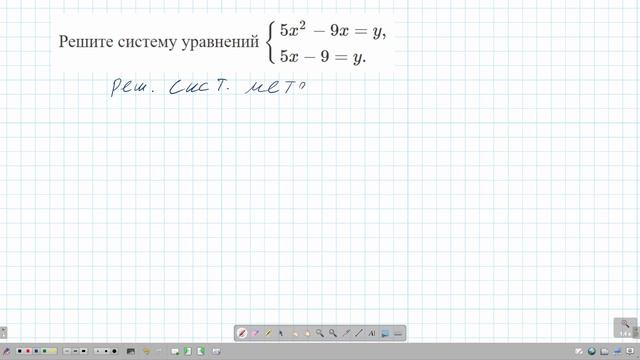 Решите систему уравнений { 5x² − 9x = y,
5x − 9 = y.
реш. сист. мето